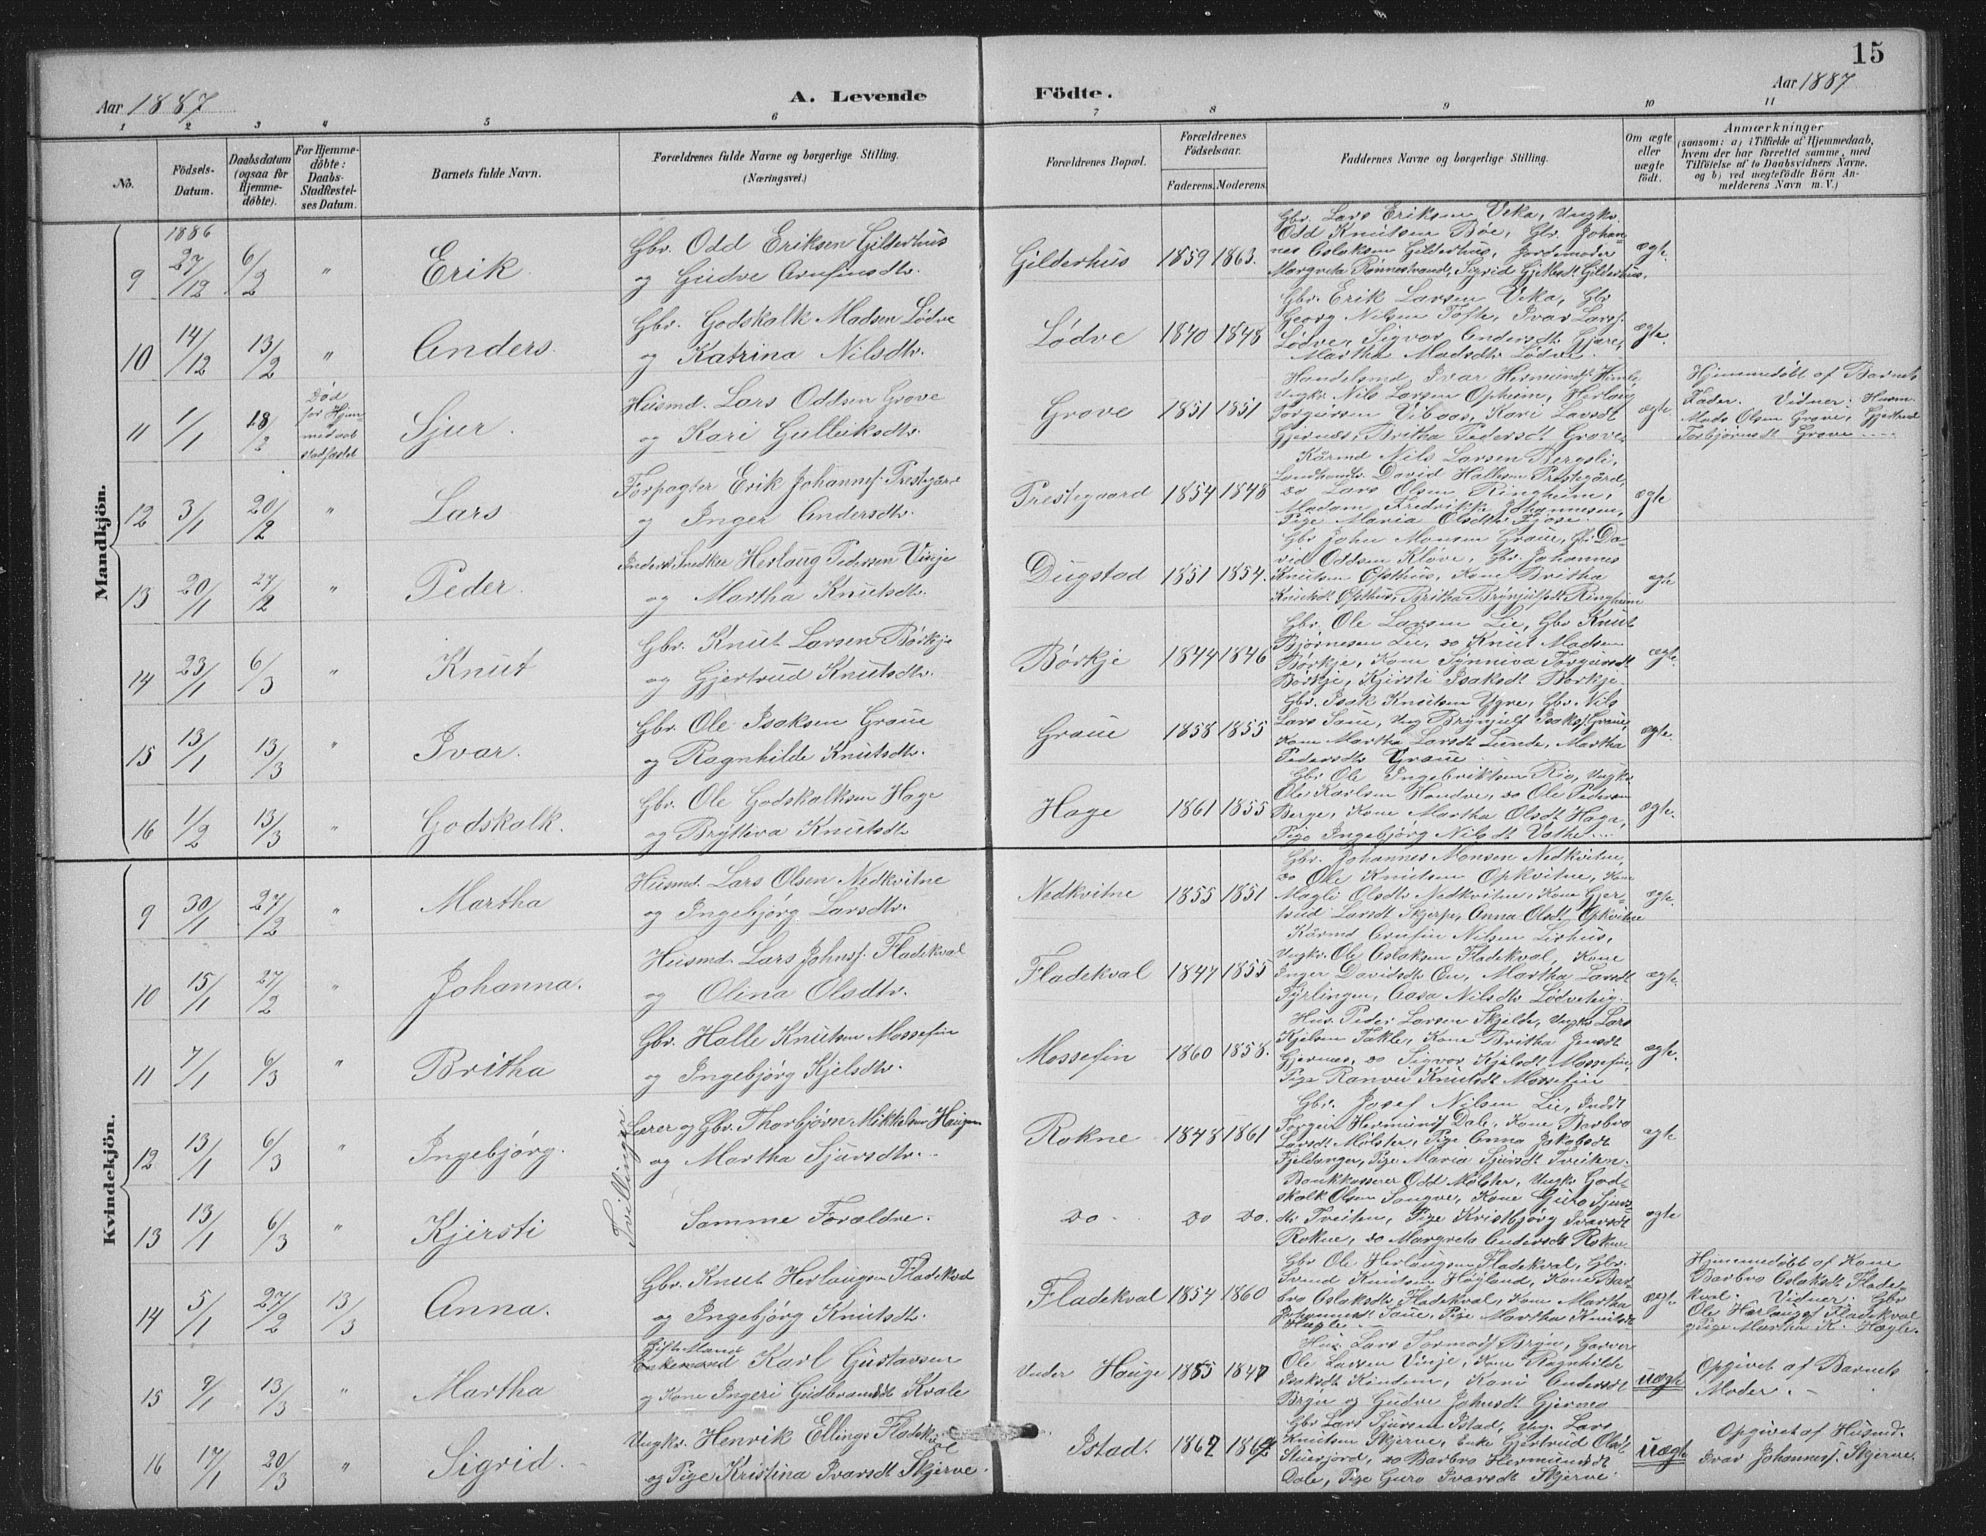 15
Aar 1887
A. Levende Födte.
Aar 1887
1 2 3 4 5 6 7 8 9 10 11
No.
Födsels-Datum.
Daabsdatum (ogsaa for Hjemme-döbte).
For Hjemme-döbte: Daabs-Stadfæstel-ses Datum.
Barnets fulde Navn.
Forældrenes fulde Navne og borgerlige Stilling.
(Næringsvei.)
Forældrenes Bopæl.
Forældrenes Födselsaar.
Faderens. Moderens.
Faddernes Navne og borgerlige Stilling.
Om ægte eller uægte födt.
Anmærkninger
(saasom: a) i Tilfælde af Hjemmedaab, hvem der har forrettet samme, med Tilföielse af to Daabsvidners Navne, og b) ved uægtefödte Börn An-melderens Navn m. V.)
Mandkjön.
1886
9 27/12 6/2 " Erik.
Gbr. Odd Eriksen Gilderhus
og Gudve Arnfinsdtr.
Gilderhus 1859 1863.
Gbr. Lars Eriksen Veka, Ungkr.
Odd Knutsen Bøe, Gbr. Johan-
nes Oslaksen Gilderhus, Jordemoder
Margreta Rønnestrand, Sigrid Gjelesdt Gilderhus.
ægte.
10 14/12 13/2 " Anders.
Gbr. Godskalk Madsen Lødve
og Katrina Nilsdtr.
Lødve 1840 1848
Gbr. Erik Larsen Veka, Gbr
Georg Nilsen Tøfte, Ivar Larss.
Lødve, Sigvor Andersdt Gjøre,
Martha Madsdtr Lødve.
ægte.
11 1/1 18/2
Død
før Hjem-
medaab
stadfæstet
Sjur.
Husmd. Lars Oddsen Grove
og Kari Gulleiksdtr.
Grove 1851 1851
Handelsmd Ivar Hermunds. Himle
Ungkr. Nils Larsen Opheim, Herlaug
Torgersen Vibaas, Kari Larsdt
Gjernæs, Britha Pedersdt Grove.
ægte.
Hjemmedøbt af Barnets
Fader. Vidner: Husm.
Mads Olsen Grove, Gjertrud
Torbjørnsdt Grove
12 3/1 20/2 " Lars
Forpagter Erik Johannes. Prestegaard
og Inger Andersdtr.
Prestegaard 1854 1848
Kårmd Nils Larsen Bergsli,
Landhandlr. David Hallesen Prestegård,
do Lars Olsen Ringheim,
Madam Fredrikke Johannesen,
Pige Maria Olsdtr Fjose.
ægte
13 20/1 27/2 " Peder.
Inderst, Snedker Herlaug Pedersen Vinje
og Martha Knutsdtr.
Dugstad 1851 1854.
Gbr John Monsen Graue, Gbr Da-
vid Oddsen Kløve, Gbr. Johannes
Knutsen Opsthus, Kone Britha
Knutsdt Opsthus, Britha Brynjulfsdt Ringheim
ægte
14 23/1 6/3 " Knut
Gbr. Knut Larsen Børkje
og Gjertrud Knutsdtr.
Børkje 1844 1846
Gbr. Ole Larsen Lie, Gbr Knut
Bjørnesen Lie, do Knut Madsen
Børkje, Kone Synniva Torgersdt
Børkje, Kjersti Isaksdt Børkje.
ægte.
15 13/1 13/3 " Ivar.
Gbr. Ole Isaksen Graue
og Ragnhilde Knutsdtr.
Graue 1858 1855
Gbr. Isak Knutsen Ygre, Gbr. Nils
Lars Saue, Ung Brynjulf Isaks. Graue,
Kone Martha Larsdt Lunde, Martha
Pedersdtr Graue.
ægte.
16 1/2 13/3 " Godskalk.
Gbr. Ole Godskalksen Hage
og Brytteva Knutsdtr
Hage 1861 1855
Gbr Ole Ingebriktsen Rio, Ungkr.
Ole Karlsen Handve, do Ole Pedersen
Berge, Kone Martha Olsdt Haga,
Pige Ingebjørg Nilsdt Vathe
ægte.
Kvindekjön.
9 30/1 27/2 " Martha
Husmd. Lars Olsen Nedkvitne
og Ingebjørg Larsdtr.
Nedkvitne 1855 1851
Gbr. Johannes Monsen Nedkvitne,
do Ole Knutsen Opkvitne, Kone
Magli Olsdtr Nedkvitne, Kone Gjer-
trud Larsdt Skjerpe, Anna Olsdt Opkvitne
ægte.
10 15/1 27/2 " Johanna.
Husmd. Lars Johns. Fladekval
og Olina Olsdtr.
Fladekval 1847 1855
Kårmd Arnfin Nilsen Lirhus,
Ungkr. Ole Oslaksen Fladekval, Kone
Inger Davidsdt En, Martha Larsdt
Tyrlingen, Aasa Nilsdtr Lødvehig.
ægte.
11 7/1 6/3 " Britha
Gbr. Halle Knutsen Mossefin
og Ingebjørg Kjelsdtr.
Mossefin 1860 1858.
Hus. Peder Larsen Skjelde, Ungkr Lars
Kjelsen Takle, Kone Britha Jensdt
Gjernæs, do Sigvor Kjelsdt Mossefin,
Pige Ranvei Knutsdt Mossefin
ægte.
Tvillinger
12 13/1 6/3 " Ingebjørg.
Lærer og Gbr. Thorbjørn Mikkelsen Haugen
og Martha Sjursdtr.
Rokne 1848 1861
Gbr. Josef Nilsen Lie, Indst
Torgeir Hermunds Dale, Kone Barbro
Larsdt Mølster, Pige Anna Jakobsdt
Fjeldanger, Pige Maria Sjursdt Tveiten.
ægte
13 13/1 6/3 " Kjersti
Samme Forældre.
do do do.
Bankkasserer Odd Mølster, Ungkr God-
skalk Olsen Songve, Kone Guro Sjurs-
dtr Tveiten, Pige Kristbjørg Ivarsdt
Rokne, do Margreta Andersdt Rokne
ægte
14 5/1 27/2 13/3 Anna.
Gbr. Knut Herlaugsen Fladekval
og Ingebjørg Knutsdtr.
Fladekval 1854 1860
Gbr Ole Herlaugsen Fladekval, Gbr.
Svend Knutsen Høyland, Kone Bar-
bro Oslaksdtr Fladekval, Kone Martha
Johannesdt Saue, Pige Martha Knutsdt
Hægle.
ægte.
Hjemmedøbt af Kone
Barbro Oslaksdt Flade-
kval. Vidner: Gbr
Ole Herlaugs. Fladekval
og Pige Martha K. Hægle.
15 9/1 13/3 " Martha
Gift Mand
Enkemand Karl Gustavsen
og Kone Ingeri Gudbrandsdt Kvale
Under Hauge 1855 1847
Hus. Lars Tormods. Bryn, Garver
Ole Larsen Vinje, Kone Ragnhilde
Isaksdt Kinden, Kari Andersdt
Bryn og Gudve Johnsdt Gjernes
uægte
Opgivet af Barnets
Moder.
16 17/1 20/3 " Sigrid.
Ungkr. Henrik Ellings. Fladekval
og Pige Kristina Ivarsdt Skjerve.
Istad. 1862 1862
Gbr Lars Sjursen Istad, Ung. Lars
Knutsen Skjerve, Enke Gjertrud Olsdt
Stuerjord, do Barbro Hermundsdt
Dale, Pige Guro Ivarsdt Skjerve
uægte
Opgivet af Husmd.
Ivar Johannes. Skjerve.